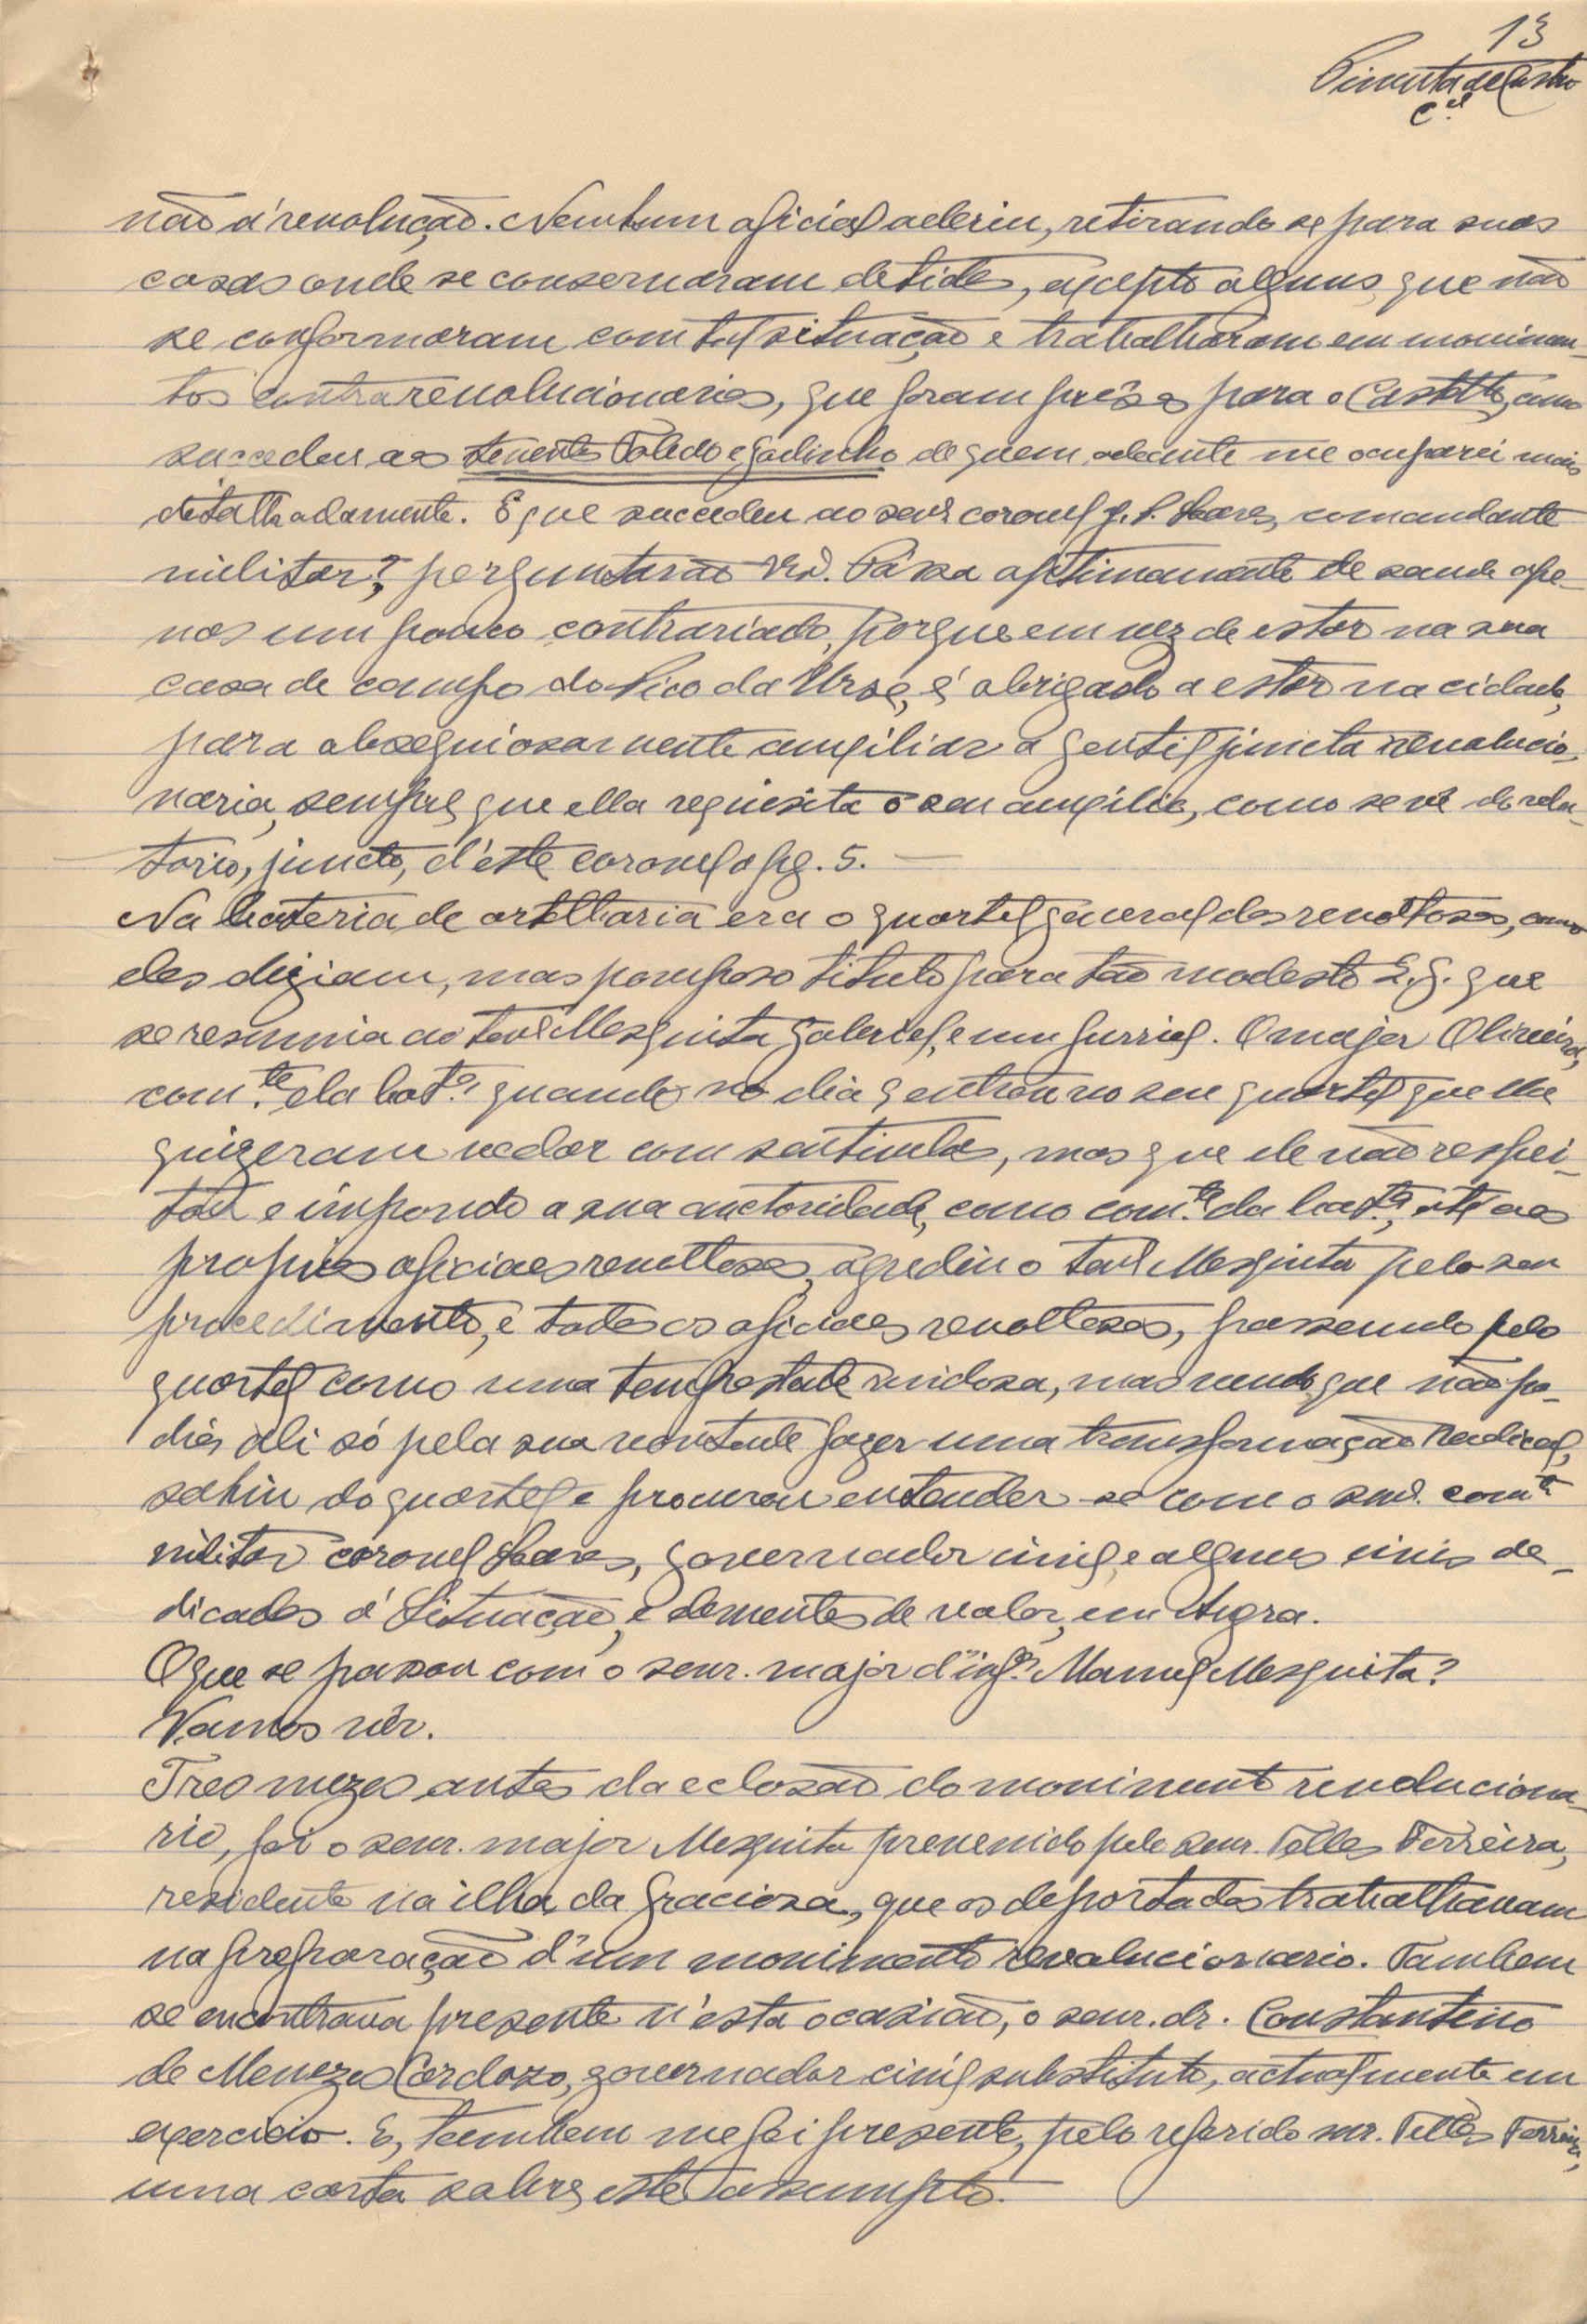 13
Pimenta de Castro
C.el
não á revolução. Nenhum oficial aderiu, retirando se para suas
casas onde se conservaram detidos, excepto alguns, que não
se conformaram com tal situação e trabalharam em movimen-
tos contrarevolucionarios, que foram prêsos para o Castello, como
succedeu aos tenentes Toledo e Godinho de quem adeante me ocuparei mais
detalhadamente. E que succedeu ao senr coronel Soares, comandante
militar?, perguntarão V. Passa optimamente de saude ape-
nas um pouco contrariado, porque em vez de estar na sua
casa de campo do Pico da Urze, é obrigado a estar na cidade,
para obsequiosamente auxiliar a gentil juncta revolucio-
naria, sempre que ella requisita o seu auxilio, como se vê do rela-
torio, juncto, d'éste coronel a pg. 5.
Na bateria de artelharia era o quartel general dos revoltosos, como
eles diziam, mas pomposo titulo para tão modesto Q.G. que
se resumia ao tent Mesquita, Gabriel, e um furriel. O major Oliveira,
com.te da bat.a quando no dia 9 entrou no seu quartel que lhe
quizeram vedar com sentinelas, mas que ele não respei-
tou e impondo a sua auctoridade, como com.te da bat.a, até aos
proprios oficiaes revoltosos, agrediu o tent Mesquita pelo seu
procedimento, e todos os oficiaes revoltosos, passando pelo
quartel como uma tempestade ruidosa, mas vendo que não po-
dia ali só pela sua vontade fazer uma transformação radical,
sahiu do quartel e procurou entender-se com o snr. com.te
militar coronel Soares, governador civil, e alguns civis de-
dicados á Situação, e elementos de valor, em Angra.
O que se passou com o senr. major d'inf.a Manuel Mesquita?
Vamos vêr.
Tres mezes antes da eclosão do movimento revoluciona-
rio, foi o senr. major Mesquita prevenido pelo senr. Telles Ferreira,
residente na ilha da Graciosa, que os deportados trabalhavam
na preparação d'um movimento revolucionario. Tambem
se encontrava presente n'esta ocasião, o senr. dr. Constantino
de Menezes Cardozo, governador civil substituto, actualmente em
exercicio. E, tambem me foi presente, pelo referido snr. Telles Ferreira,
uma carta sobre este assumpto.